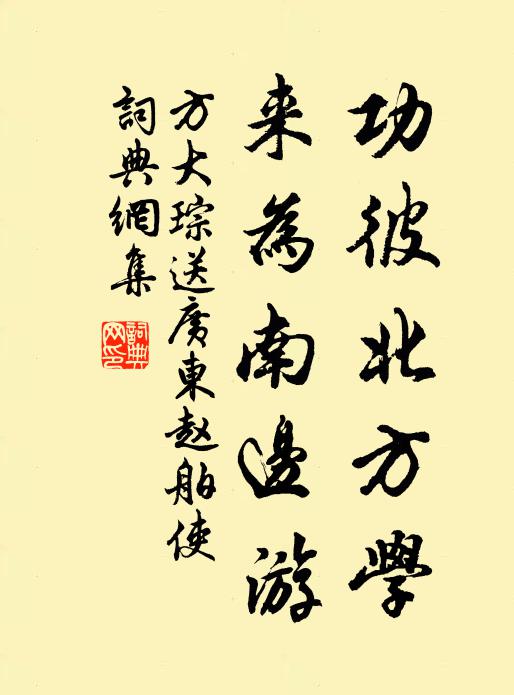 功彼北方學
来為南邊游
方大琮送廣東赵舶使
詞典網集
詞典网印